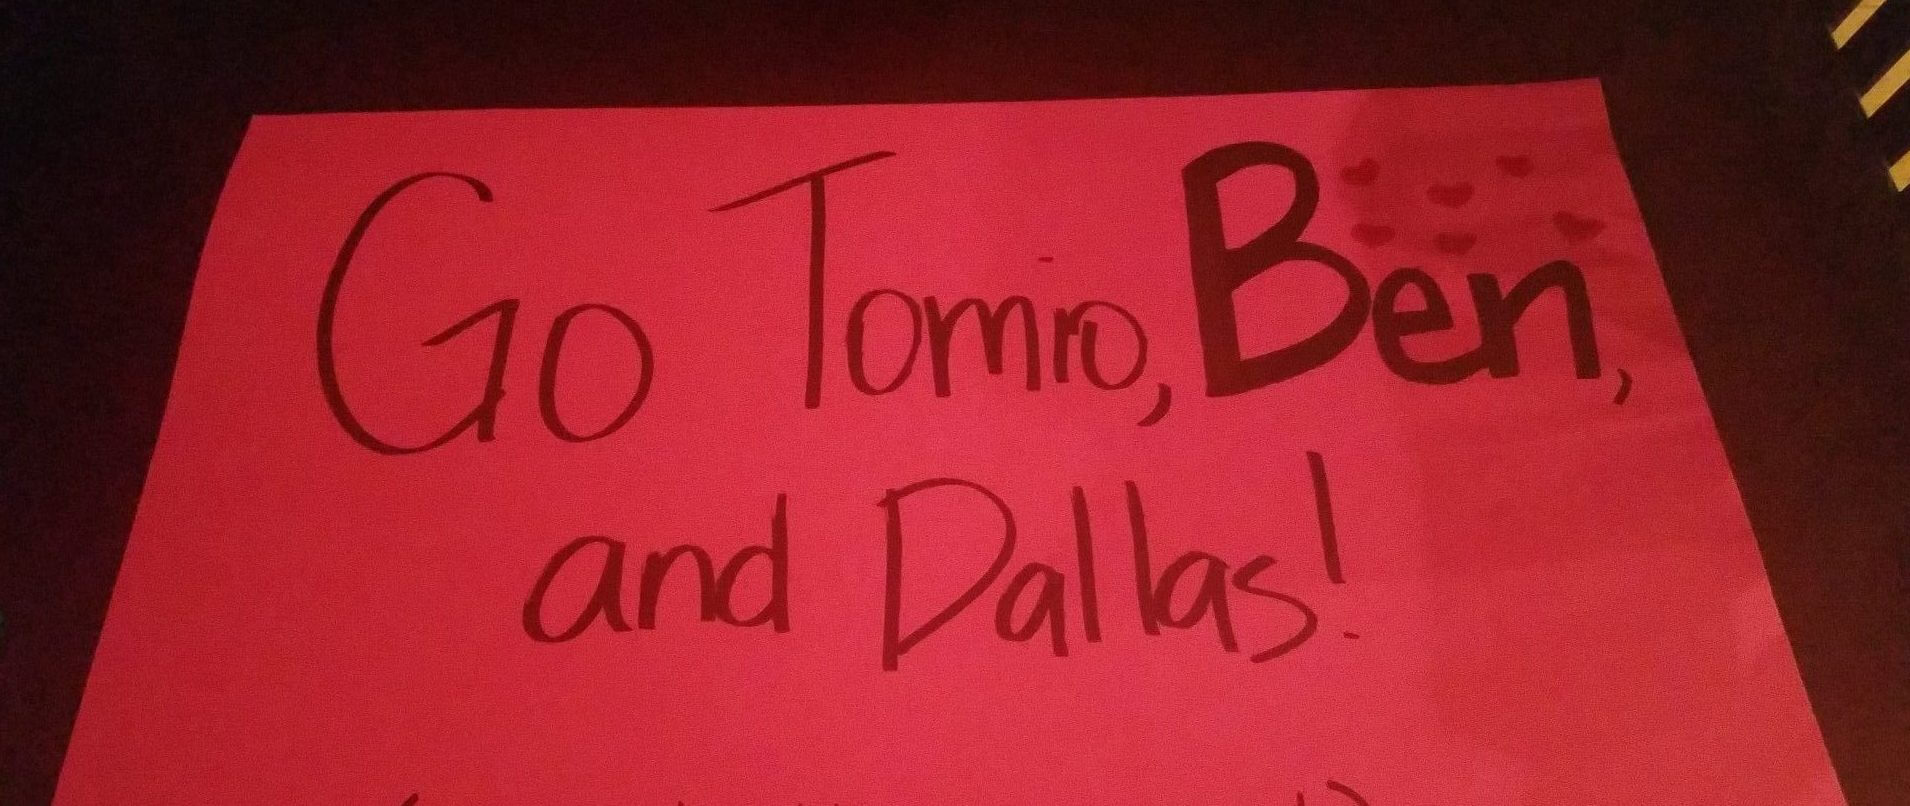 Go Tomio, Ben,
and Dallas!